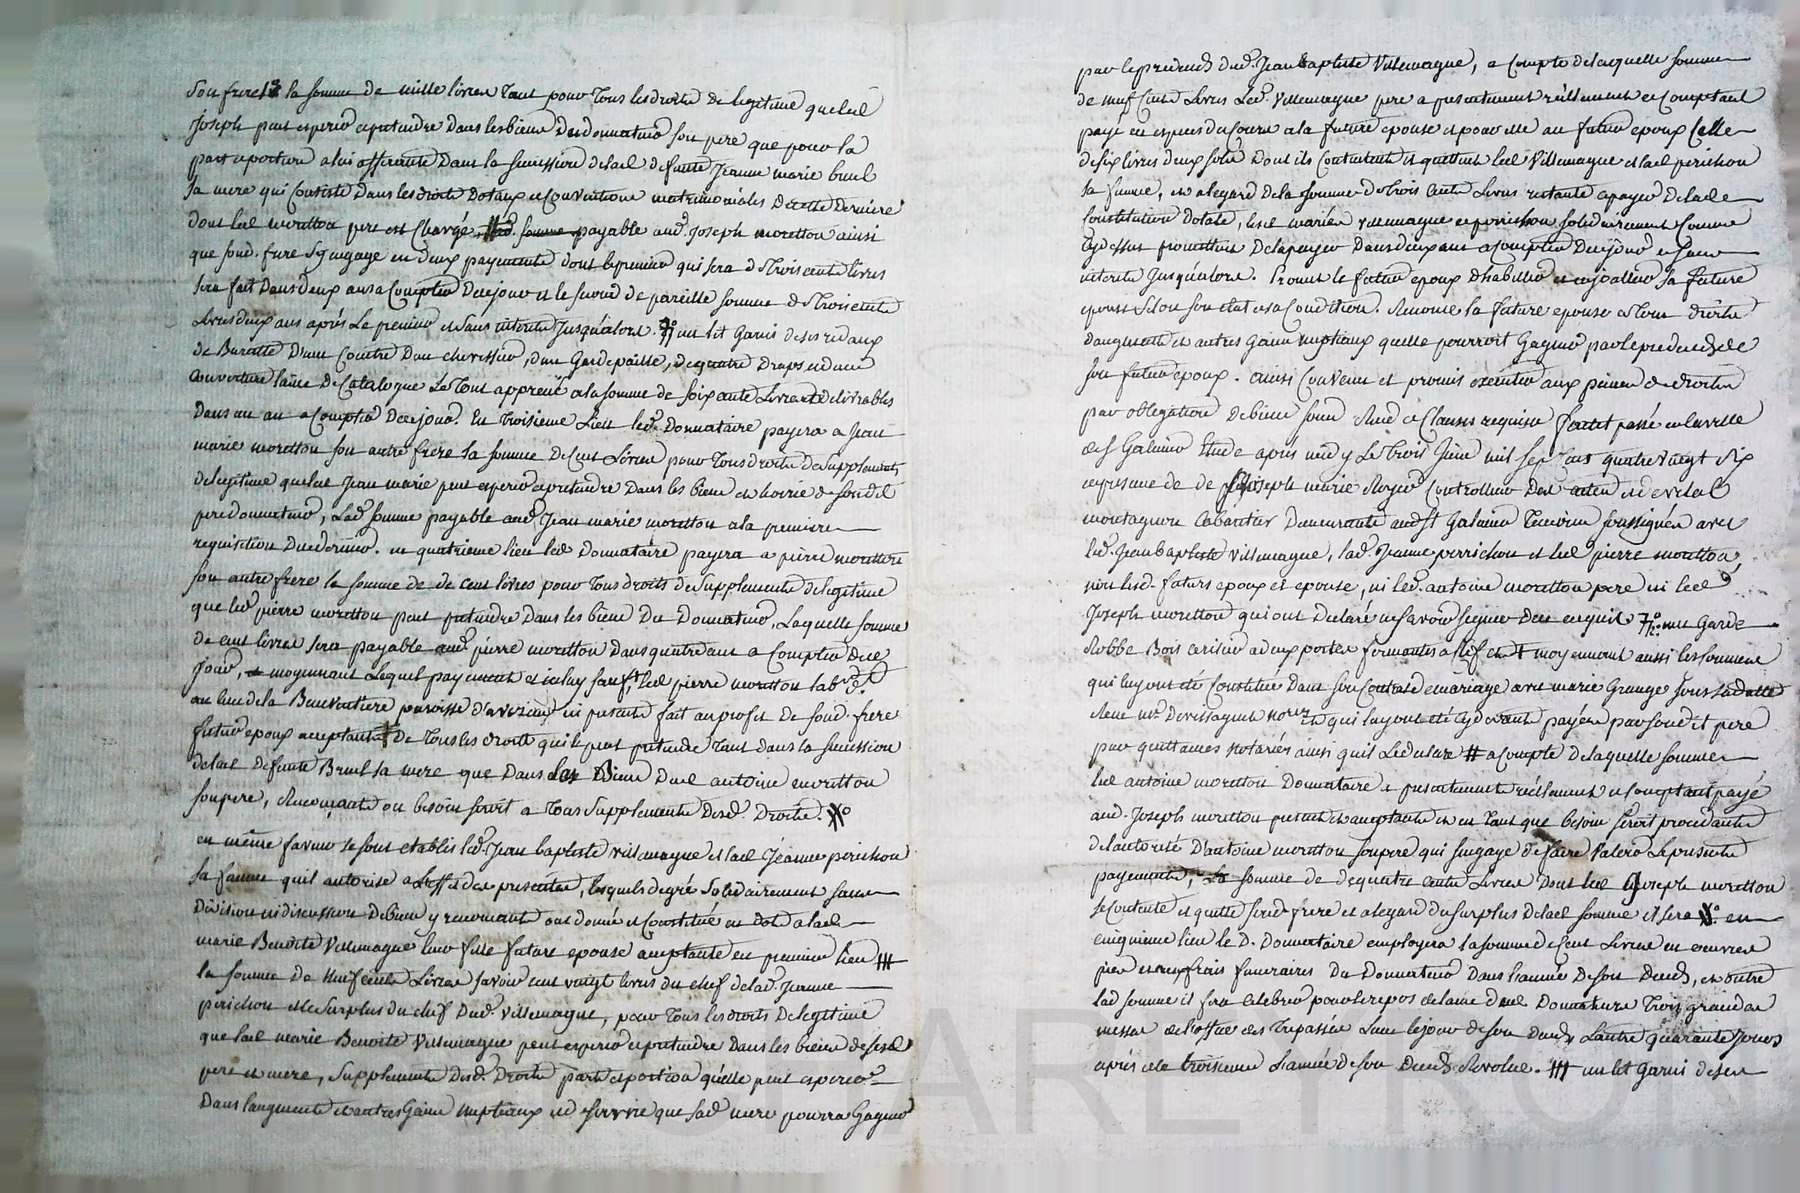 son frere 1° la somme de mille livres tant pour tous les droits de legitime que led
Joseph peut esperer et pretendre dans les biens du donnateur son pere que pour la
part et portion a lui afferante dans la succession de lad. defunte Jeanne marie bruel
sa mere qui consiste dans les droits dotaux et conventions matrimoniales de cette derniere
dont led moretton pere est chargé, payable aud. Joseph moretton ainsi
que sond. frere s'y engage en deux payements dont le premier qui sera de trois cents livres
sera fait dans deux ans a compter de ce jour et le second de pareille somme de trois cents
Livres deux ans après le premier et sans interets jusqu'alors. un lit garni de ses rideaux
de Buratte d'une Coitre d'un chevessier, d'un Gardepaille, de quatre draps et d'une
couverture laine de Catalogne Le tout apprecié a la somme de soixante Livres et delivrables
dans un an a compter de ce jour. En troisieme Lieu led. Donnataire payera a Jean
marie moretton son autre frere la somme de Cent Livres pour tous droits de supplements
de legitime que led Jean marie peut esperer et pretendre dans les biens et hoirie de sond.
pere donnateur, Lad. somme payable aud. Jean marie moretton a la premiere
requisition de ce dernier. en quatrieme lieu led Donnataire payera a pierre moretton
son autre frere la somme de de cent livres pour tous droits de supplements de legitime
que led. pierre moretton peut pretendre dans les biens du Donnateur, Laquelle somme
de cent livres sera payable aud. pierre moretton dans quatre ans a compter de ce
jour, moyennant Lequel payement et iceluy sauf, led pierre moretton
au lieu de la Bonventiere paroisse d'aveizieu ici present fait au profit de sond. frere
futur epoux acceptant de tous les droits qu'il peut pretendre tant dans la succession
de lad. defunte Bruel sa mere que dans les Biens dud antoine moretton
son pere, Renonçant ou besoin seroit a tous supplements desd. Droits.
en même faveur se sont etablis led. Jean baptiste villemagne et lad Jeanne perichon
sa femme qu'il autorise a l'effet des presentes, lesquels de gré solidairement sans
division ni discussion de biens y renonçant ont donné et constitué en dot a lad
marie Benoite Villemagne leur fille future epouse acceptante en premier lieu
la somme de neuf cents Livres savoir cent vingt livres du chef de lad. Jeanne
perichon et le surplus du chef dud. Villemagne, pour tous les droits de legitime
que lad marie Benoite Villemagne peut esperer et pretendre dans les biens de sesd
pere et mere, supplements desd. Droits part et portion qu'elle peut esperer
Dans l'augment et autres Gains nuptiaux et de survie que sad mere pourra Gagner
par le predeceds dud. Jean baptiste Villemagne, a compte de laquelle somme
de neuf cents Livres Led. Villemagne pere a presentement réellement et comptant
payé en especes de cours a la future epouse et pour elle au futur epoux Celle
de six livres deux sols dont ils contentent et quittent led Villemagne et lad perichon
sa femme, et a l'egard de la somme de trois cents Livres restante a payer de lad
Constitution dotale, lesd. mariés villemagne et perichon solidairement comme
cy dessus promettent de la payer dans deux ans a compter de ce jour et sans
interets jusqu'alors. Promet le futur epoux d'habiller et enjoaller sa future
epouse selon son etat et sa Condition. Renonce la future epouse a tous droits
d'augment et autres Gains nuptiaux qu'elle pourroit Gagner par le predeceds de
son futur epoux. ainsi convenu et promis executer aux peines de droit
par obligation de biens soum. Rend. et Clauses requises fait et passé en la ville
de St Galmier Etude après midy Le trois Juin mil sept cent quatre vingt six
en presence de de sr Joseph marie Royer Controlleur des actes et de vital
montagnon Cabartier demeurants aud St Galmier temoins soussignés avec
led. Jean baptiste villemagne, lad Jeanne perrichon et led pierre moretton,
non lesd. futurs epoux et epouse, ni led. antoine moretton pere ni led
Joseph moretton qui ont declaré ne savoir signer de ce enquis une Garde
Robbe Bois cerisier a deux portes fermantes a clef et moyennant aussi les sommes
qui luy ont été constituées dans son contrat de mariage avec marie Grange sous sa datte
qui luy ont été cy devant payées par sond. pere
par quittances notariées ainsi qu'il Le declare a compte de laquelle somme
led antoine moretton Donnataire a presentement réellement et comptant payé
aud. Joseph moretton present et acceptant et en tant que besoin seroit procedant
de l'autorité d'antoine moretton son pere qui s'engage de faire valoir Le present
payement, La somme de de quatre cents Livres dont led Joseph moretton
se contente et quitte sond. frere et a l'egard du surplus de lad somme il sera en
cinquieme lieu le D. Donnataire employera la somme de cent Livres en oeuvres
pies et aux frais funeraires du Donnateur dans l'année de son Deceds, en outre
lad somme il fera celebrer pour le repos de l'ame dud Donnateur trois grandes
messes de l'office des trepassés L'une le jour de son deceds, L'autre quarante jours
après et la troisieme L'année de son Deceds Revolue. un lit garni de ses